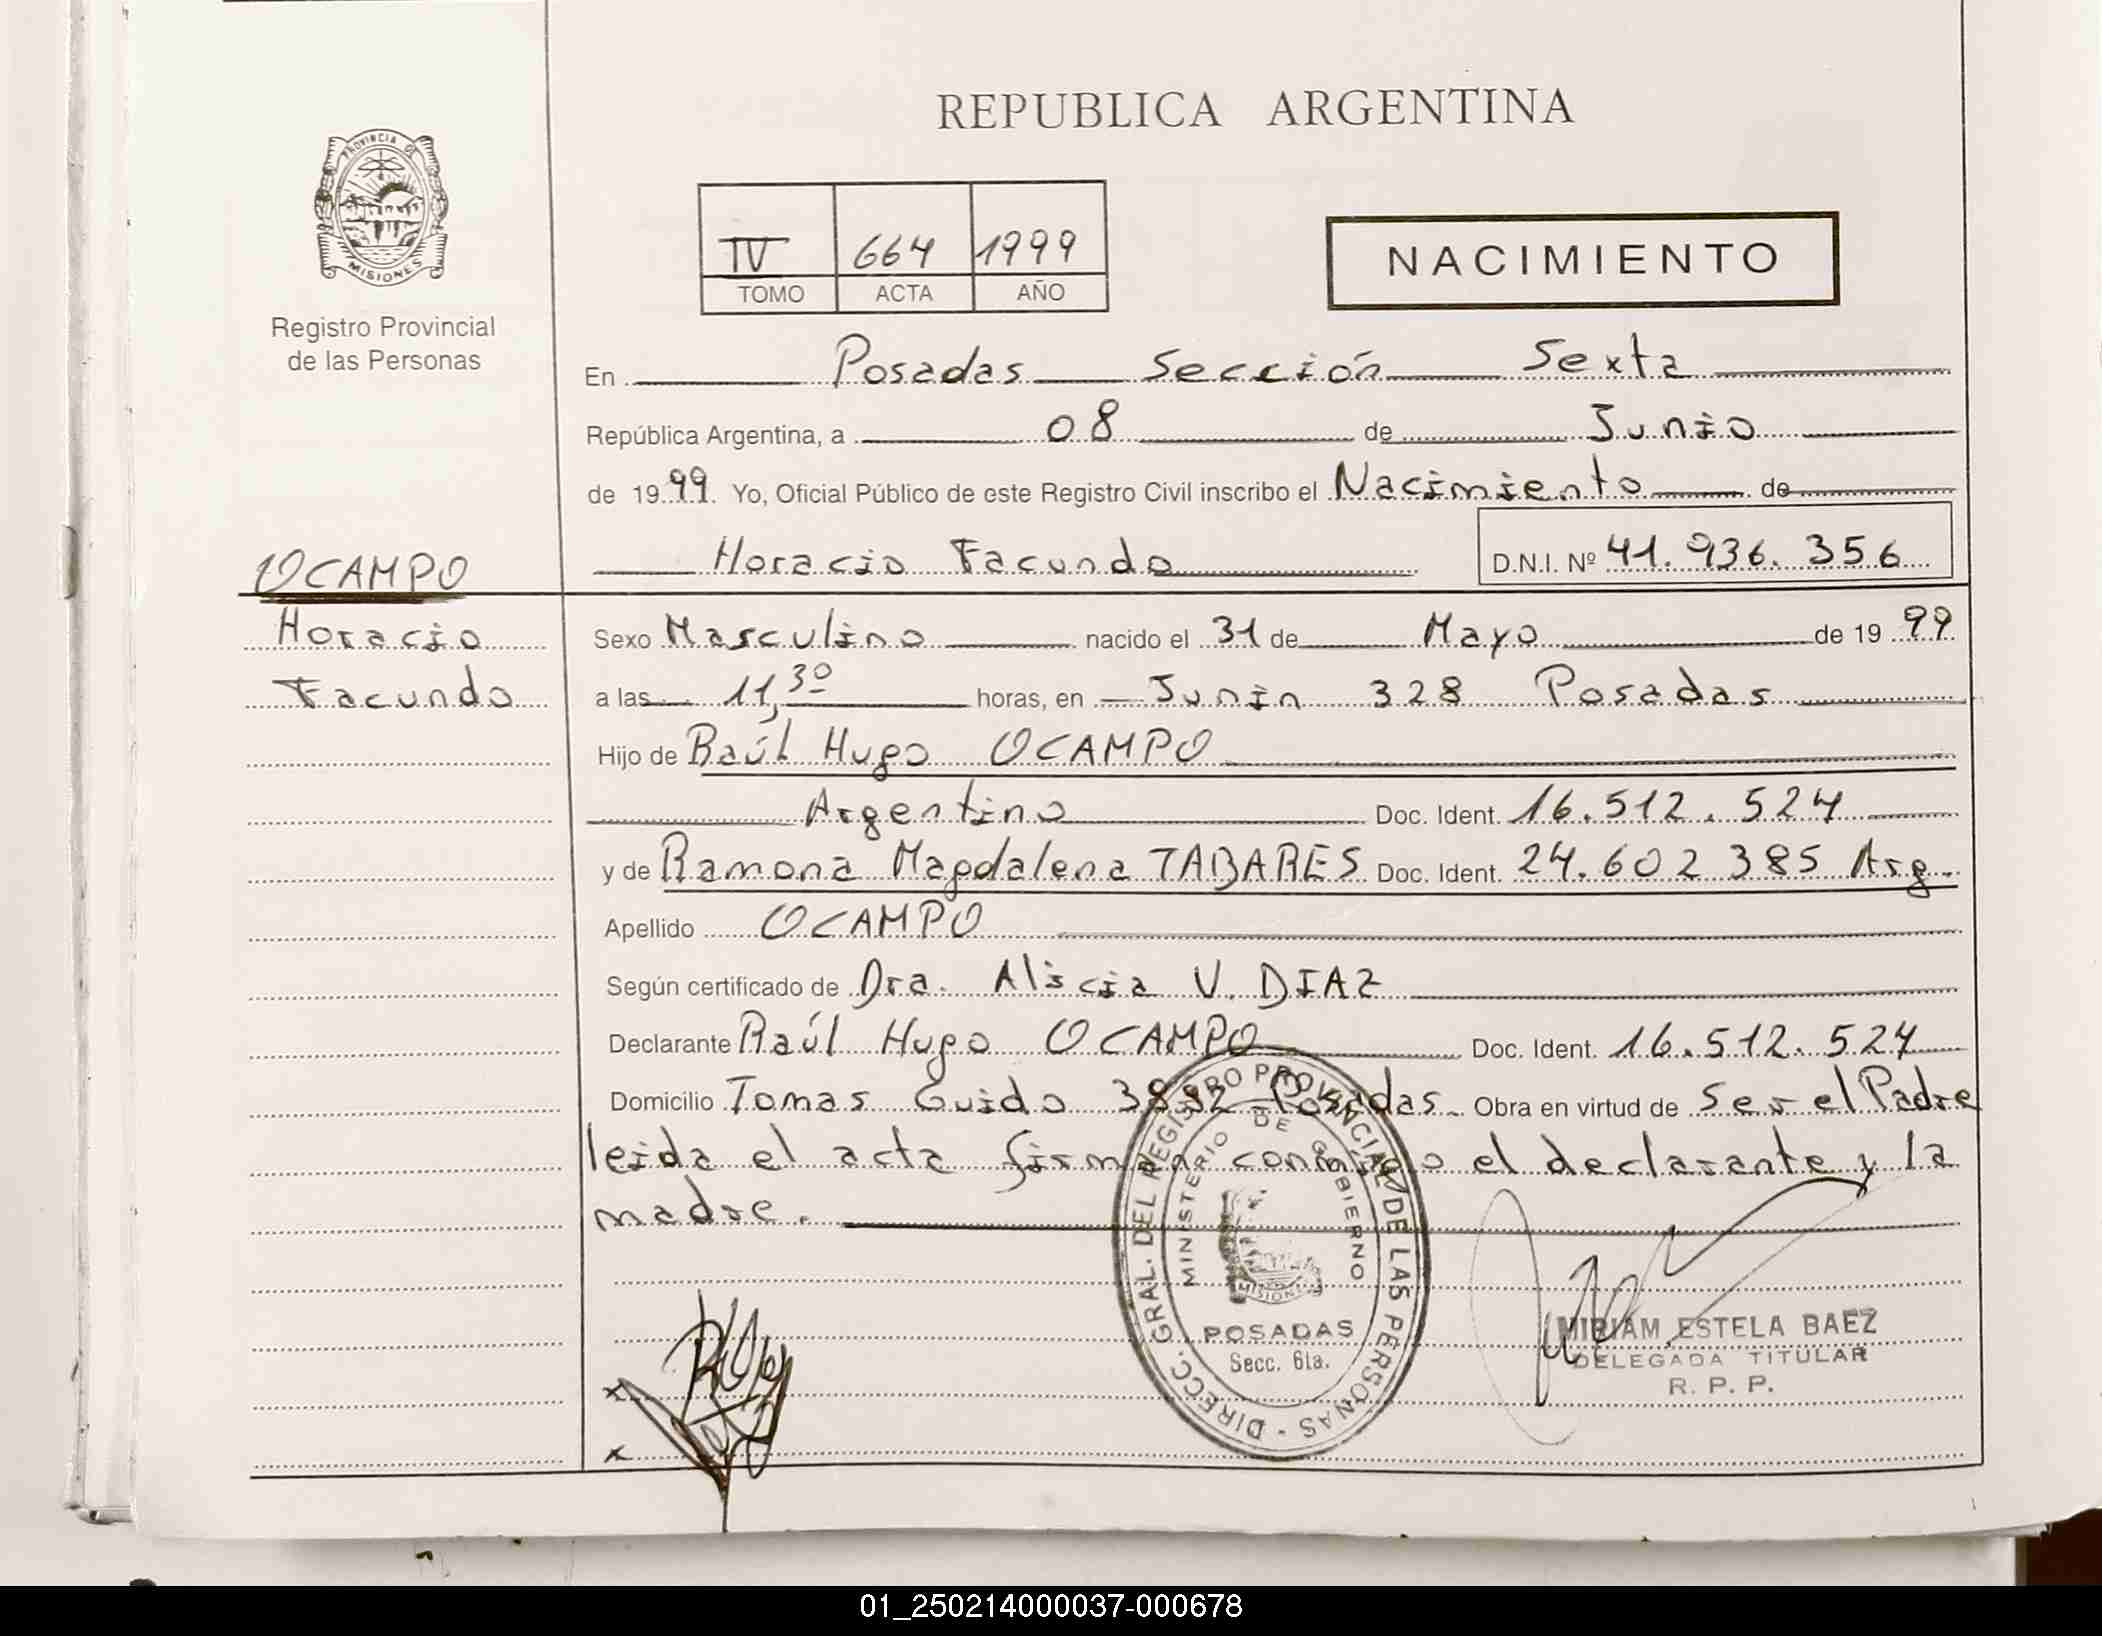 REPUBLICA ARGENTINA
PROVINCIA DE
MISIONES
Registro Provincial
de las Personas
IV 664 1999
TOMO ACTA AÑO
NACIMIENTO
En Posadas Sección Sexta
República Argentina, a 08 de Junio
de 1999. Yo, Oficial Público de este Registro Civil inscribo el Nacimiento de
Horacio Facundo D.N.I. Nº 41.936.356
OCAMPO
Horacio
Facundo
Sexo Masculino nacido el 31 de Mayo de 1999
a las 11,30 horas, en Junin 328 Posadas
Hijo de Raúl Hugo OCAMPO
Argentino Doc. Ident. 16.512.524
y de Ramona Magdalena TABARES Doc. Ident. 24.602385 Arg.
Apellido OCAMPO
Según certificado de Dra. Alicia V. DIAZ
Declarante Raúl Hugo OCAMPO Doc. Ident. 16.512.524
Domicilio Tomas Guido Posadas. Obra en virtud de Ser el Padre
leida el acta firman conmigo el declarante y la
madre.
DIRECC. GRAL. DEL REGISTRO PROVINCIAL DE LAS PERSONAS -
MINISTERIO DE GOBIERNO
MISIONES
POSADAS
Secc. 6ta.
MIRIAM ESTELA BAEZ
DELEGADA TITULAR
R. P. P.
x
x
01_250214000037-000678